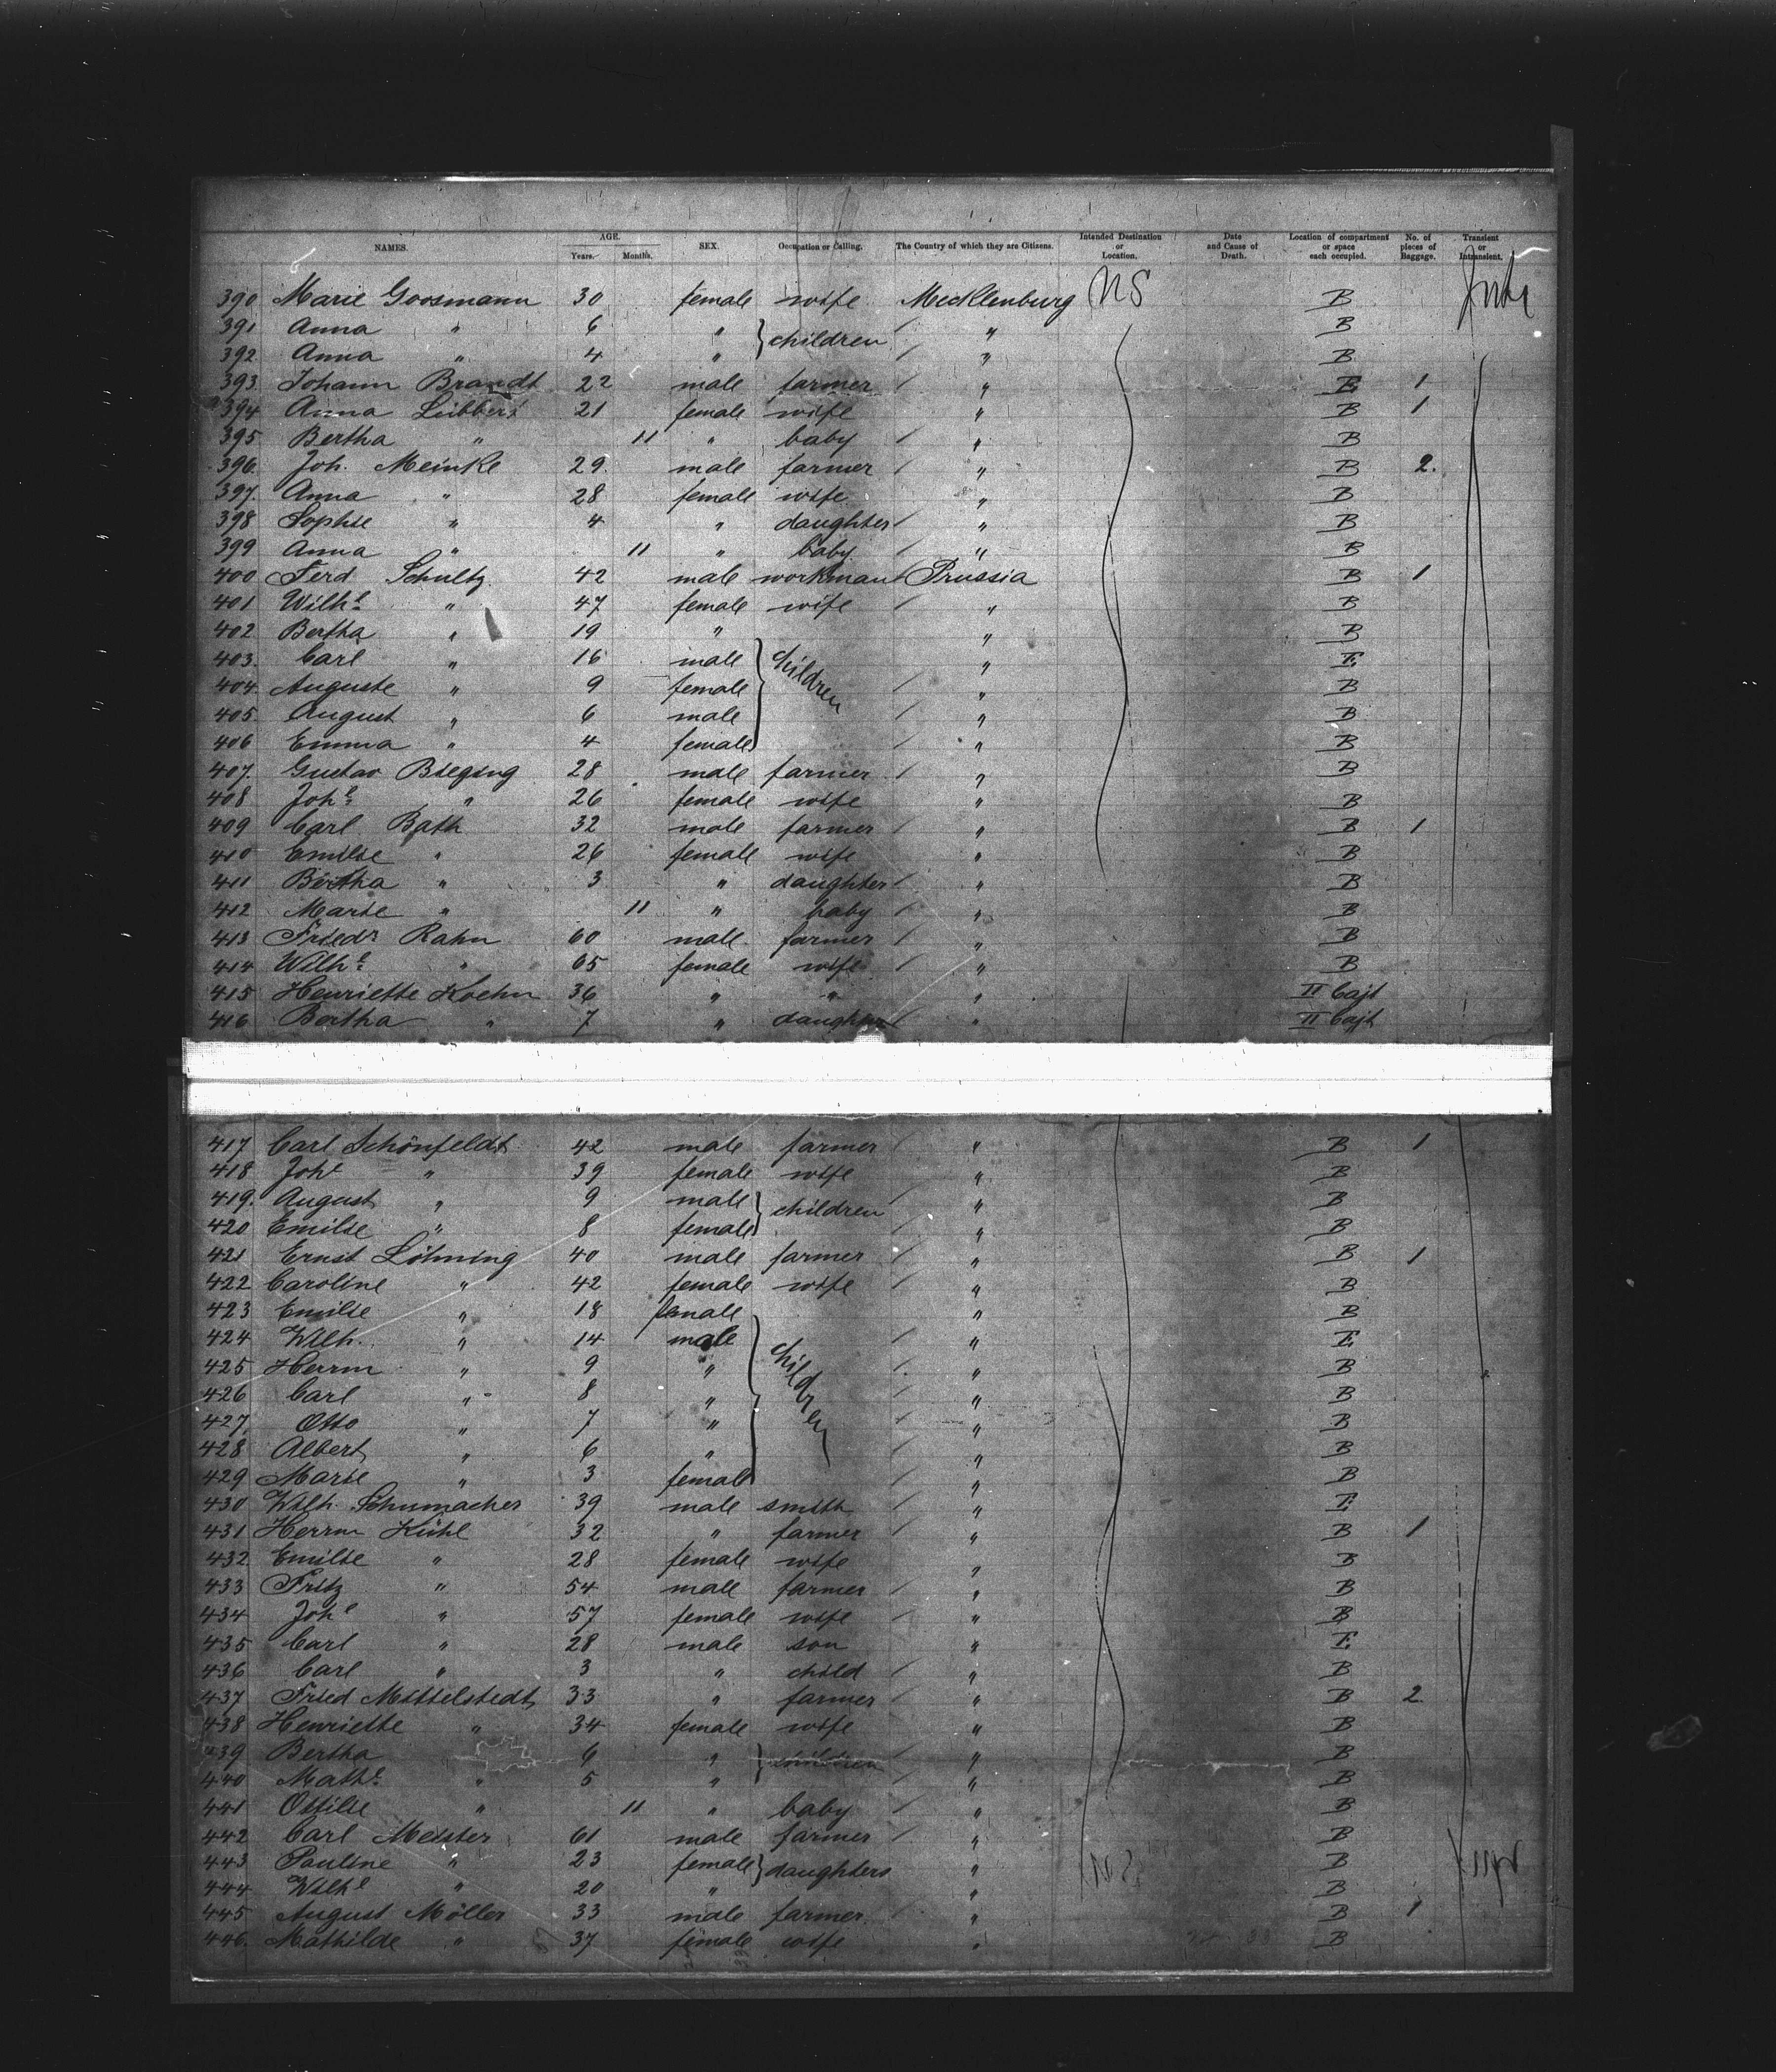 NAMES. AGE. Years. Months. SEX. Occupation or Calling. The Country of which they are Citizens. Intended Destination or Location. Date and Cause of Death. Location of compartment or space each occupied. No. of pieces of Baggage. Transient or Intransient.
390 Marie Goosmann 30 female wife Mecklenburg US B
391 Anna " 6 " } children " B
392 Anna " 4 " " B
393 Johann Brandt 22 male farmer " E 1
394 Anna Lübbers 21 female wife " B 1
395 Bertha " 11 " baby " B
396. Joh. Meinke 29. male farmer " B 2.
397. Anna " 28 female wife " B
398 Sophie " 4 " daughter " B
399 Anna " 11 " baby " B
400 Ferd Schultz 42 male workman Prussia B 1
401 Wilhe " 47 female wife " B
402 Bertha " 19 " " B
403. Carl " 16 male } children " E
404 Auguste " 9 female " B
405 August " 6 male " B
406 Emma " 4 female " B
407. Gustav Bieging 28 male farmer " B
408 Johe " 26 female wife " B
409 Carl Bath 32 male farmer " B 1
410 Emilie " 26 female wife " B
411 Bertha " 3 " daughter " B
412 Marie " 11 " baby " B
413 Friedr Rahn 60 male farmer " B
414 Wilhe " 65 female wife " B
415 Henriette Koehn 36 " " " II Cajt
416 Bertha " 7 " daughter " II Cajt
417 Carl Schönfeldt 42 male farmer " B 1
418 Johe " 39 female wife " B
419. August " 9 male } children " B
420 Emilie " 8 female " B
421 Ernst Löhning 40 male farmer " B 1
422 Caroline " 42 female wife " B
423 Emilie " 18 female " B
424 Wilh. " 14 male } children " E
425 Herrm " 9 " " B
426 Carl " 8 " " B
427. Otto " 7 " " B
428 Albert " 6 " " B
429 Marie " 3 female " B
430 Wilh. Schumacher 39 male smith " E
431 Herrm Kühl 32 " farmer " B 1
432 Emilie " 28 female wife " B
433 Fritz " 54 male farmer " B
434 Johe " 57 female wife " B
435 Carl " 28 male son " E
436 Carl " 3 " child " B
437 Fried Mittelstedt 33 " farmer " B 2
438 Henriette " 34 female wife " B
439 Bertha " 6 " } children " B
440 Mathe " 5 " " B
441 Ottilie " 11 " baby " B
442 Carl Meister 61 male farmer " B
443 Pauline " 23 female } daughters " B
444 Wilhe " 20 " " B
445 August Möller 33 male farmer " B 1
446. Mathilde " 37 female wife " B